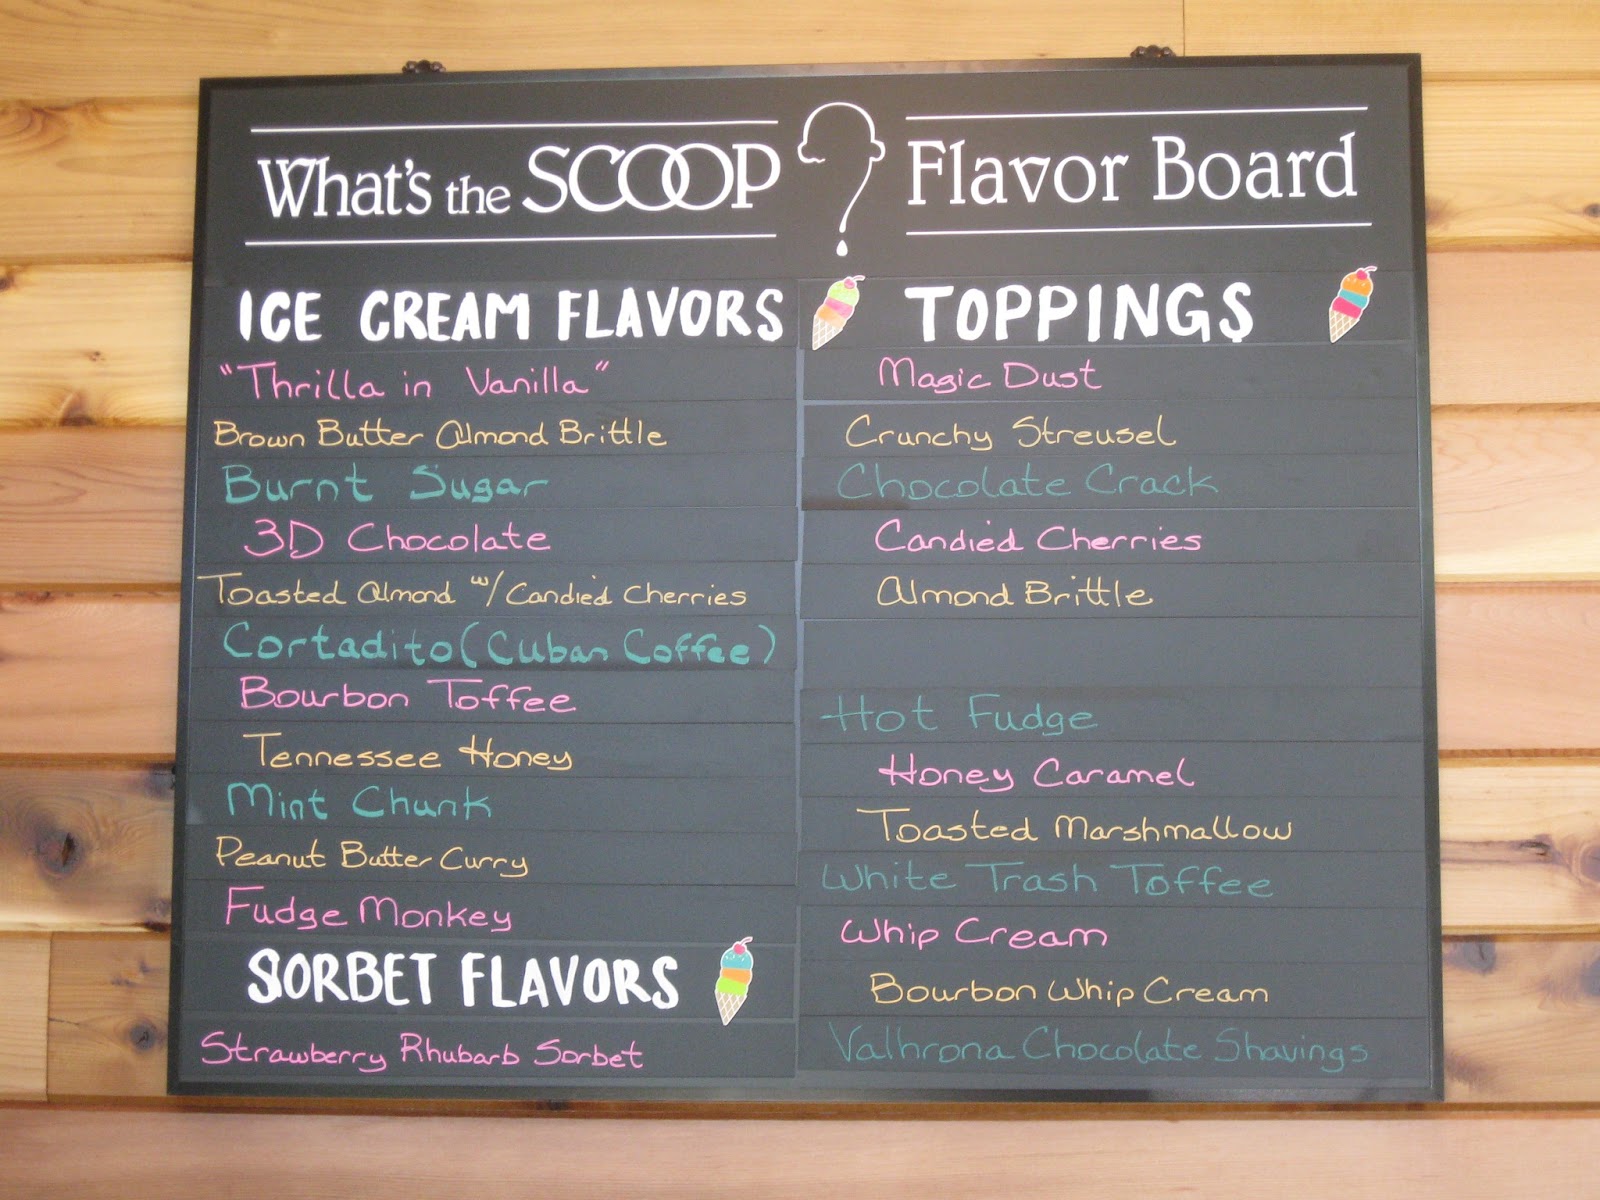 What's the SCOOP Flavor Board
ICE CREAM FLAVORS
"Thrilla in Vanilla"
Brown Butter Almond Brittle
Burnt Sugar
3D Chocolate
Toasted Almond w/ Candied Cherries
Cortadito (Cuban Coffee)
Bourbon Toffee
Tennessee Honey
Mint Chunk
Peanut Butter Curry
Fudge Monkey
SORBET FLAVORS
Strawberry Rhubarb Sorbet
TOPPINGS
Magic Dust
Crunchy Streusel
Chocolate Crack
Candied Cherries
Almond Brittle
Hot Fudge
Honey Caramel
Toasted Marshmallow
White Trash Toffee
Whip Cream
Bourbon Whip Cream
Valhrona Chocolate Shavings